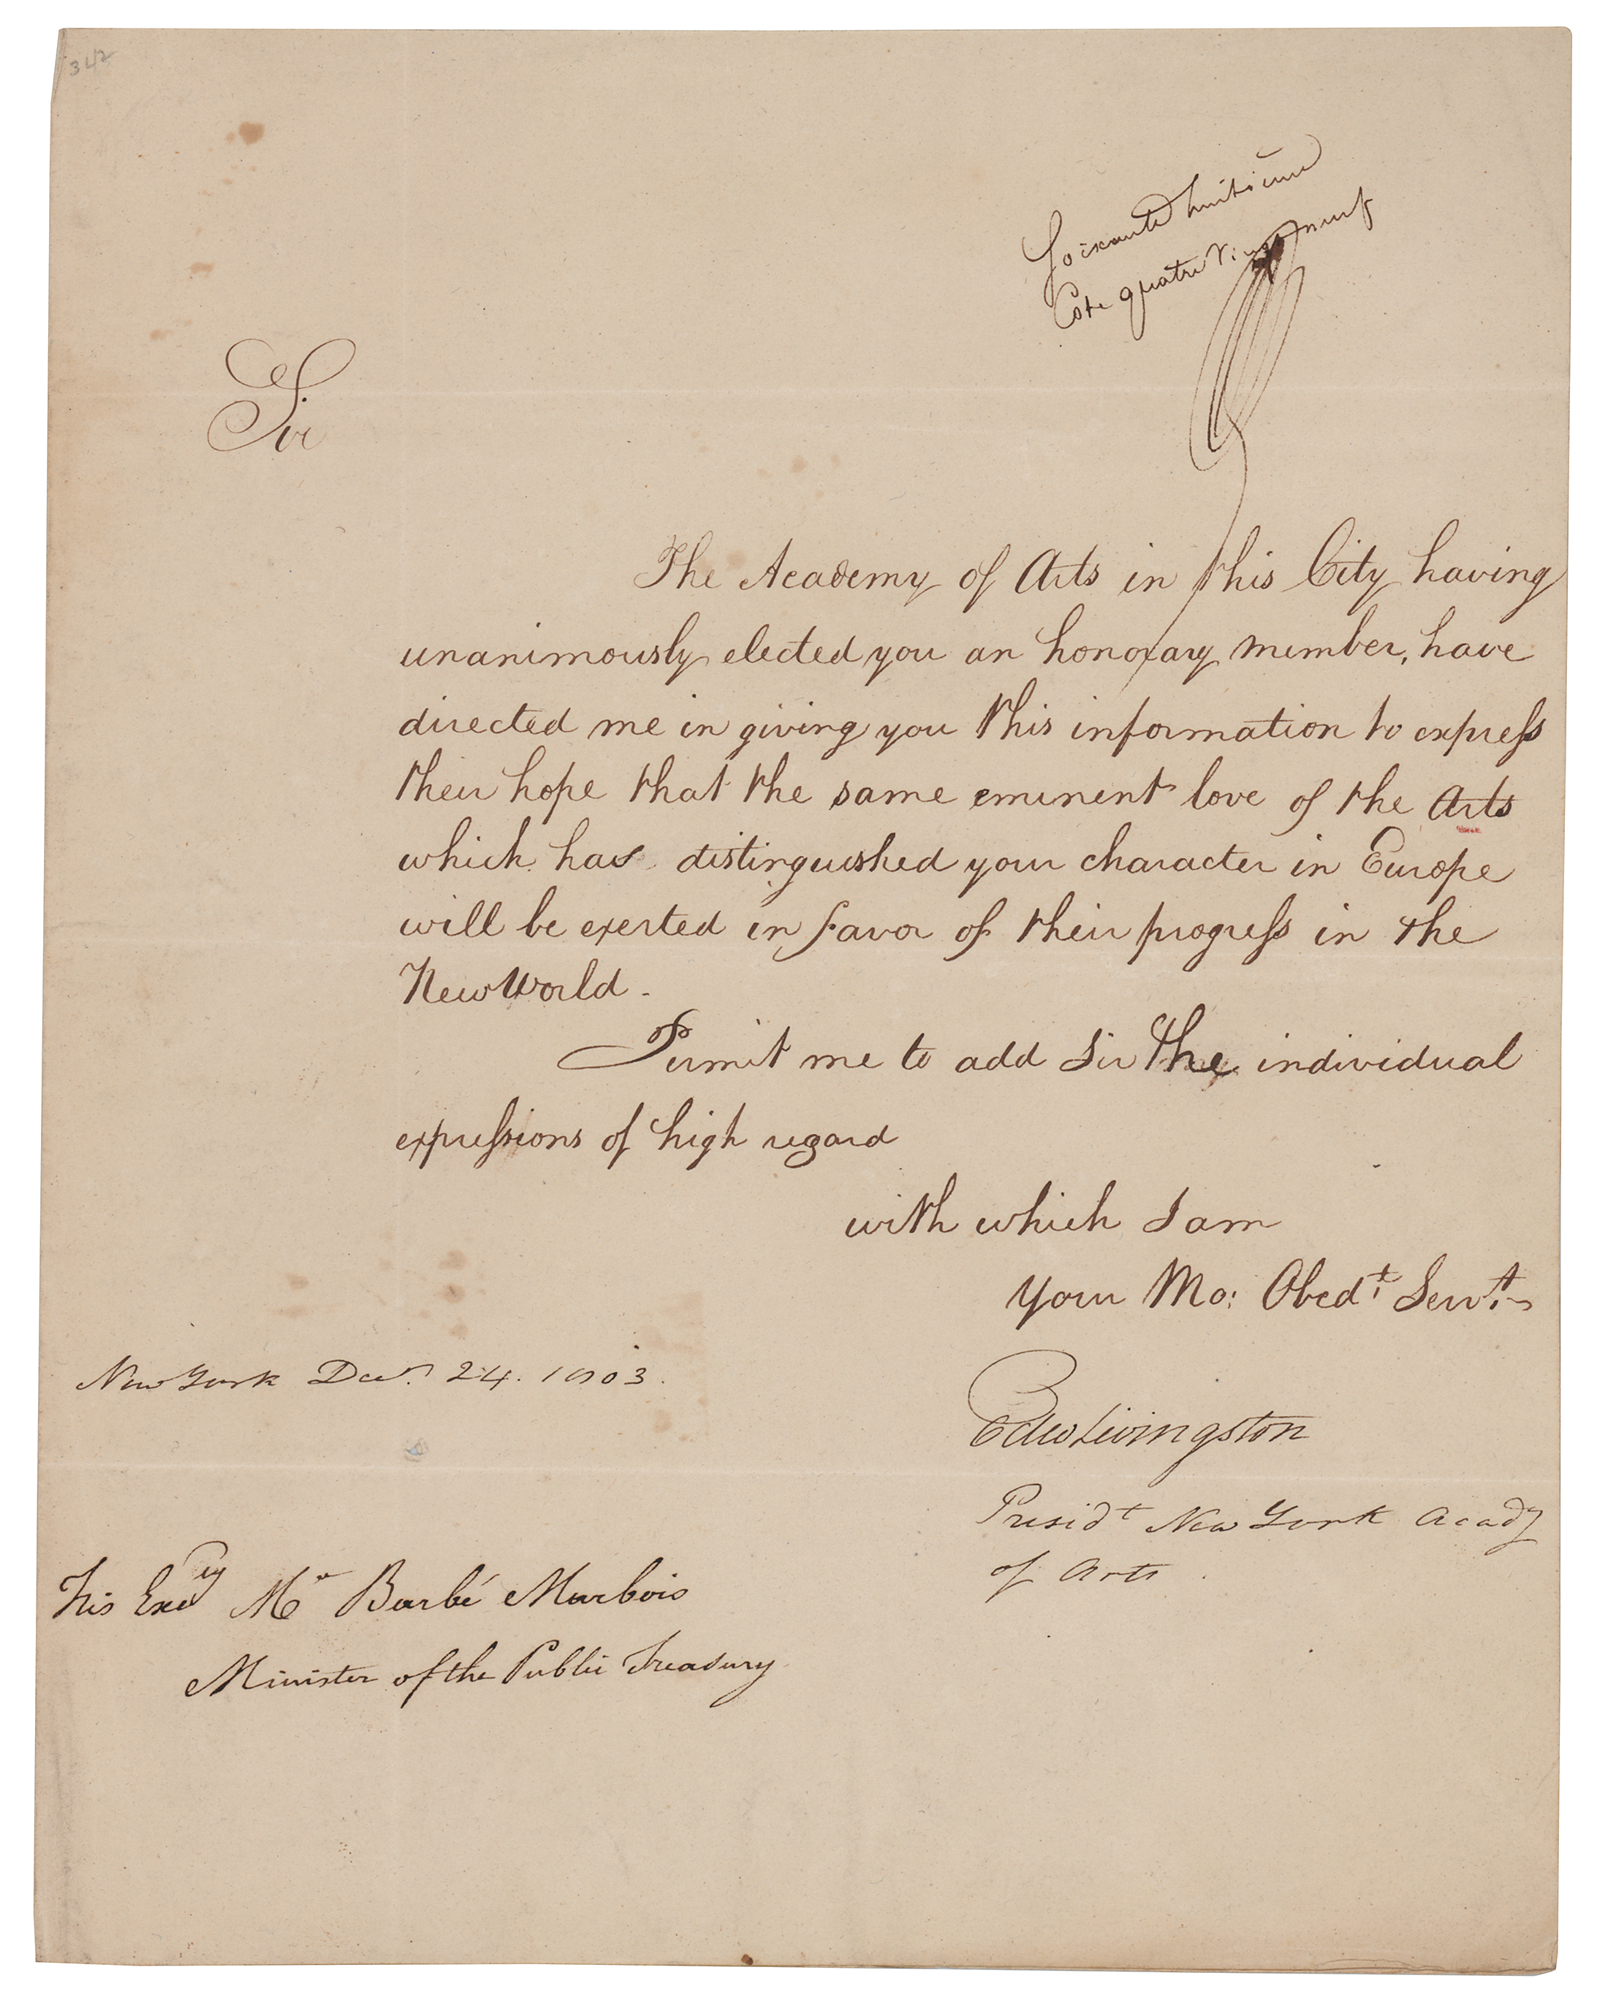 342
Soixante huitieme
Cote quatre vingt neuf
Sir
The Academy of Arts in this City having
unanimously elected you an honorary member, have
directed me in giving you this information to express
their hope that the same eminent love of the Arts
which has distinguished your character in Europe
will be exerted in favor of their progress in the
New World.
Permit me to add Sir the individual
expressions of high regard
with which I am
Your Mo: Obedt. Servt.
New York Decr. 24. 1803.
Edw Livingston
Presidt New York Acady
of Arts.
His Excy Mr Barbé Marbois
Minister of the Public Treasury